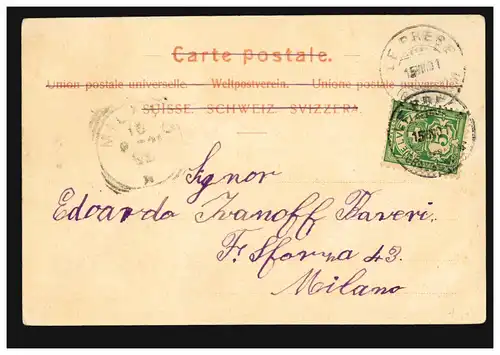 Carte postale.
Union postale universelle. — Weltpostverein. — Unione postale universale
SUISSE. SCHWEIZ. SVIZZERA.
LE PRESE
Signor
Edoardo Ivanoff Daveri.
F. Sforza 43.
Milano